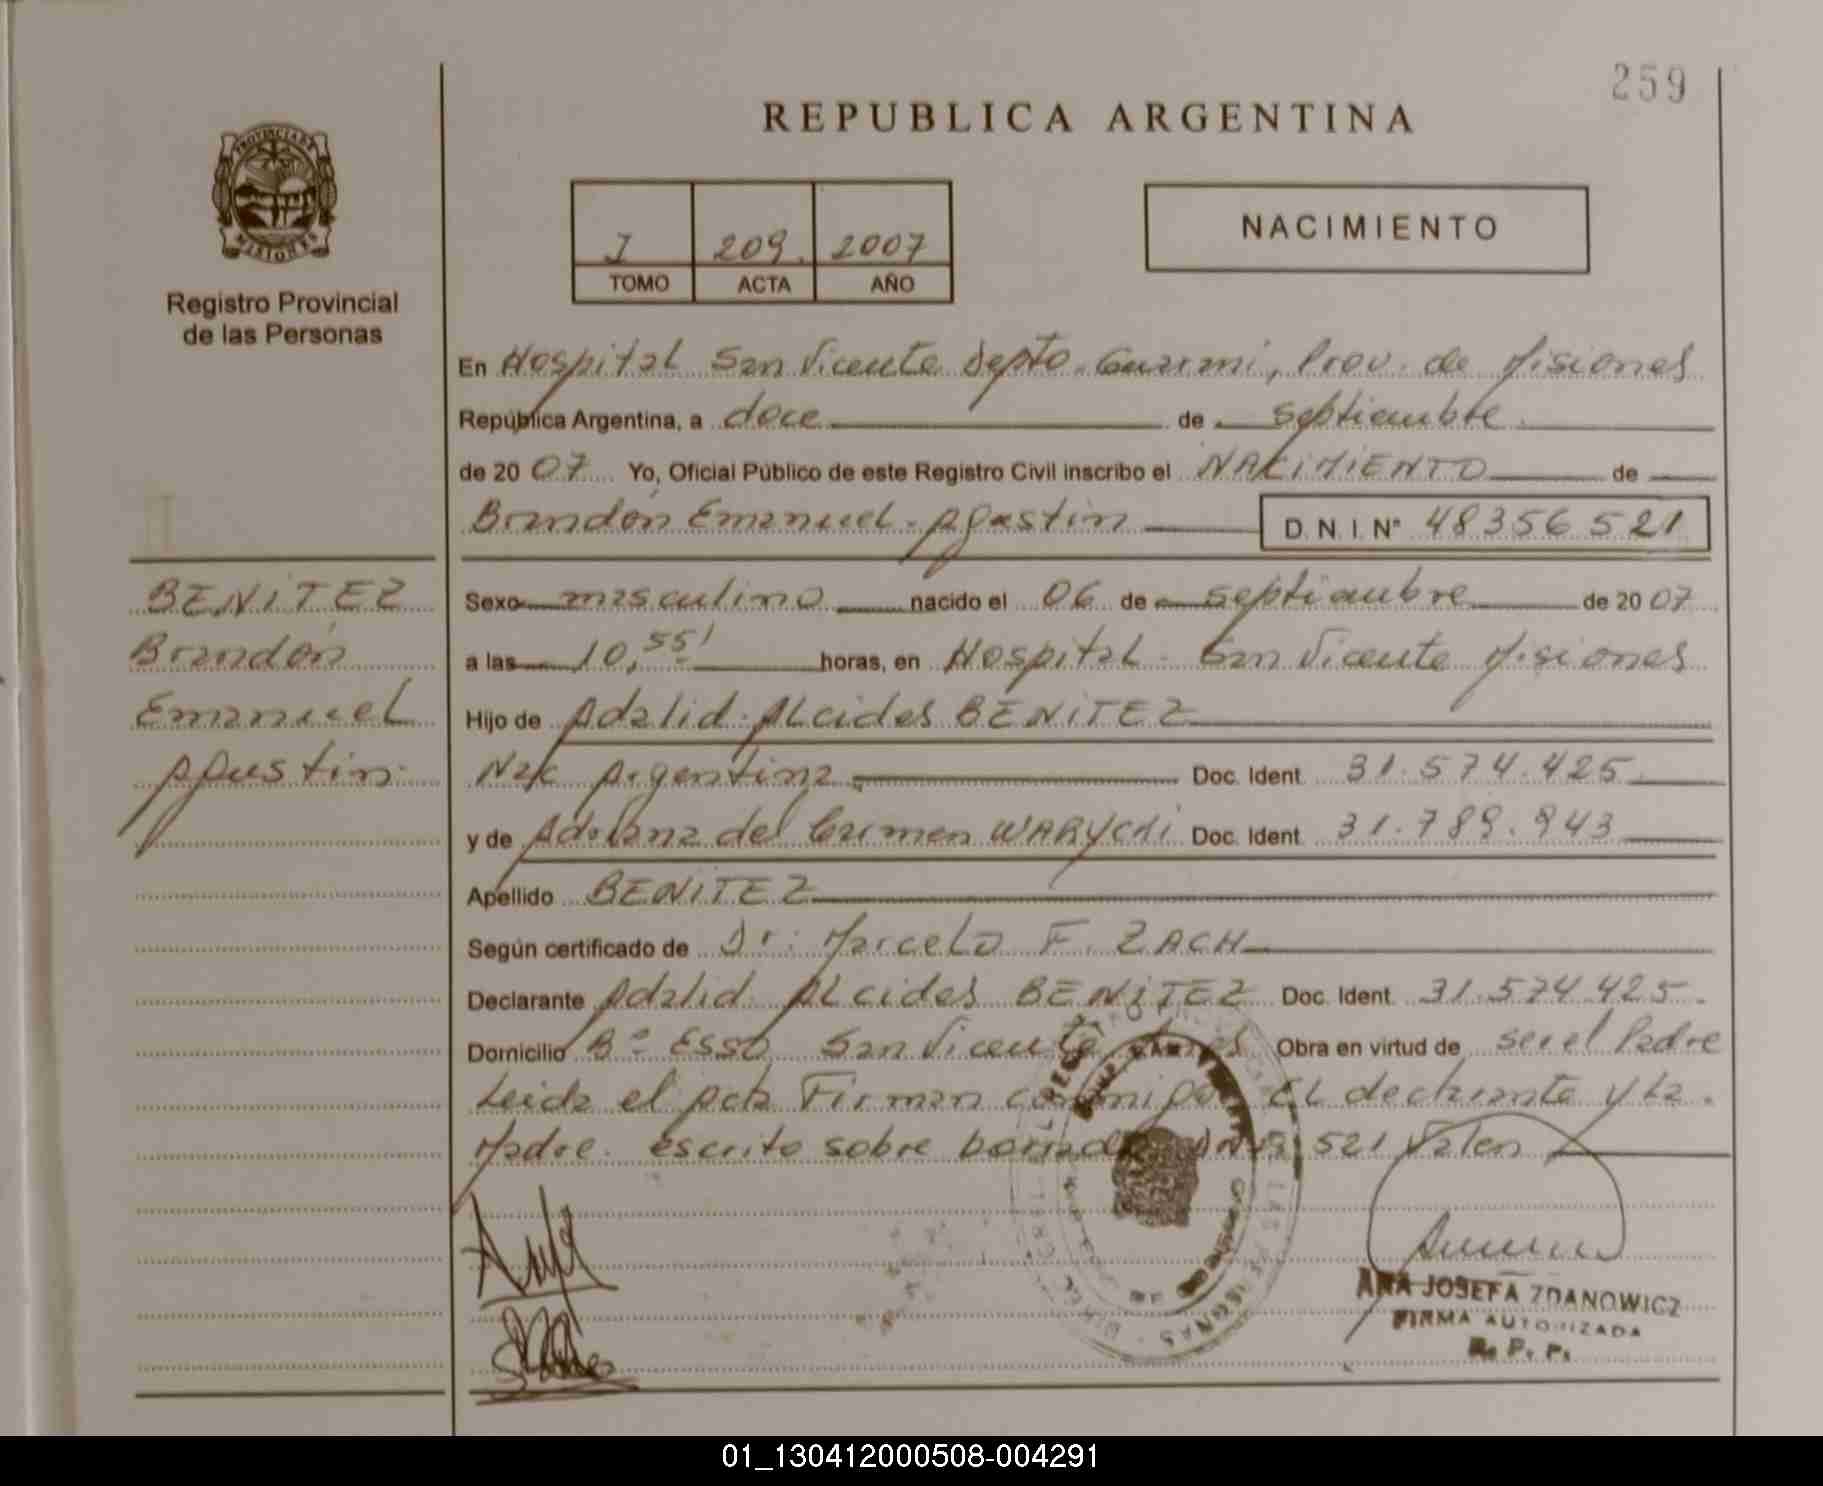 259
REPUBLICA ARGENTINA
PROVINCIA DE MISIONES
Registro Provincial
de las Personas
I 209. 2007
TOMO ACTA AÑO
NACIMIENTO
En Hospital San Vicente Depto. Guarani, Prov. de Misiones
República Argentina, a doce de septiembre
de 20 07 Yo, Oficial Público de este Registro Civil inscribo el NACIMIENTO de
Brandón Emanuel Agustin D.N.I. Nº 48356521
BENITEZ
Brandón
Emanuel
Agustin
Sexo masculino nacido el 06 de septiembre de 20 07
a las 10,55' horas, en Hospital San Vicente Misiones
Hijo de Adalid Alcides BENITEZ
Nac Argentina Doc. Ident. 31.574.425
y de Adriana del Carmen WARYCHI Doc. Ident. 31.789.943
Apellido BENITEZ
Según certificado de Dr. Marcelo F. ZACH
Declarante Adalid Alcides BENITEZ Doc. Ident. 31.574.425.
Domicilio Bº Esso San Vicente Obra en virtud de ser el Padre
Leida el acta Firman conmigo EL declarante y La
Madre. escrito sobre borrado 521 Valen
ANA JOSEFA ZDANOWICZ
FIRMA AUTORIZADA
R. P. P.
01_130412000508-004291